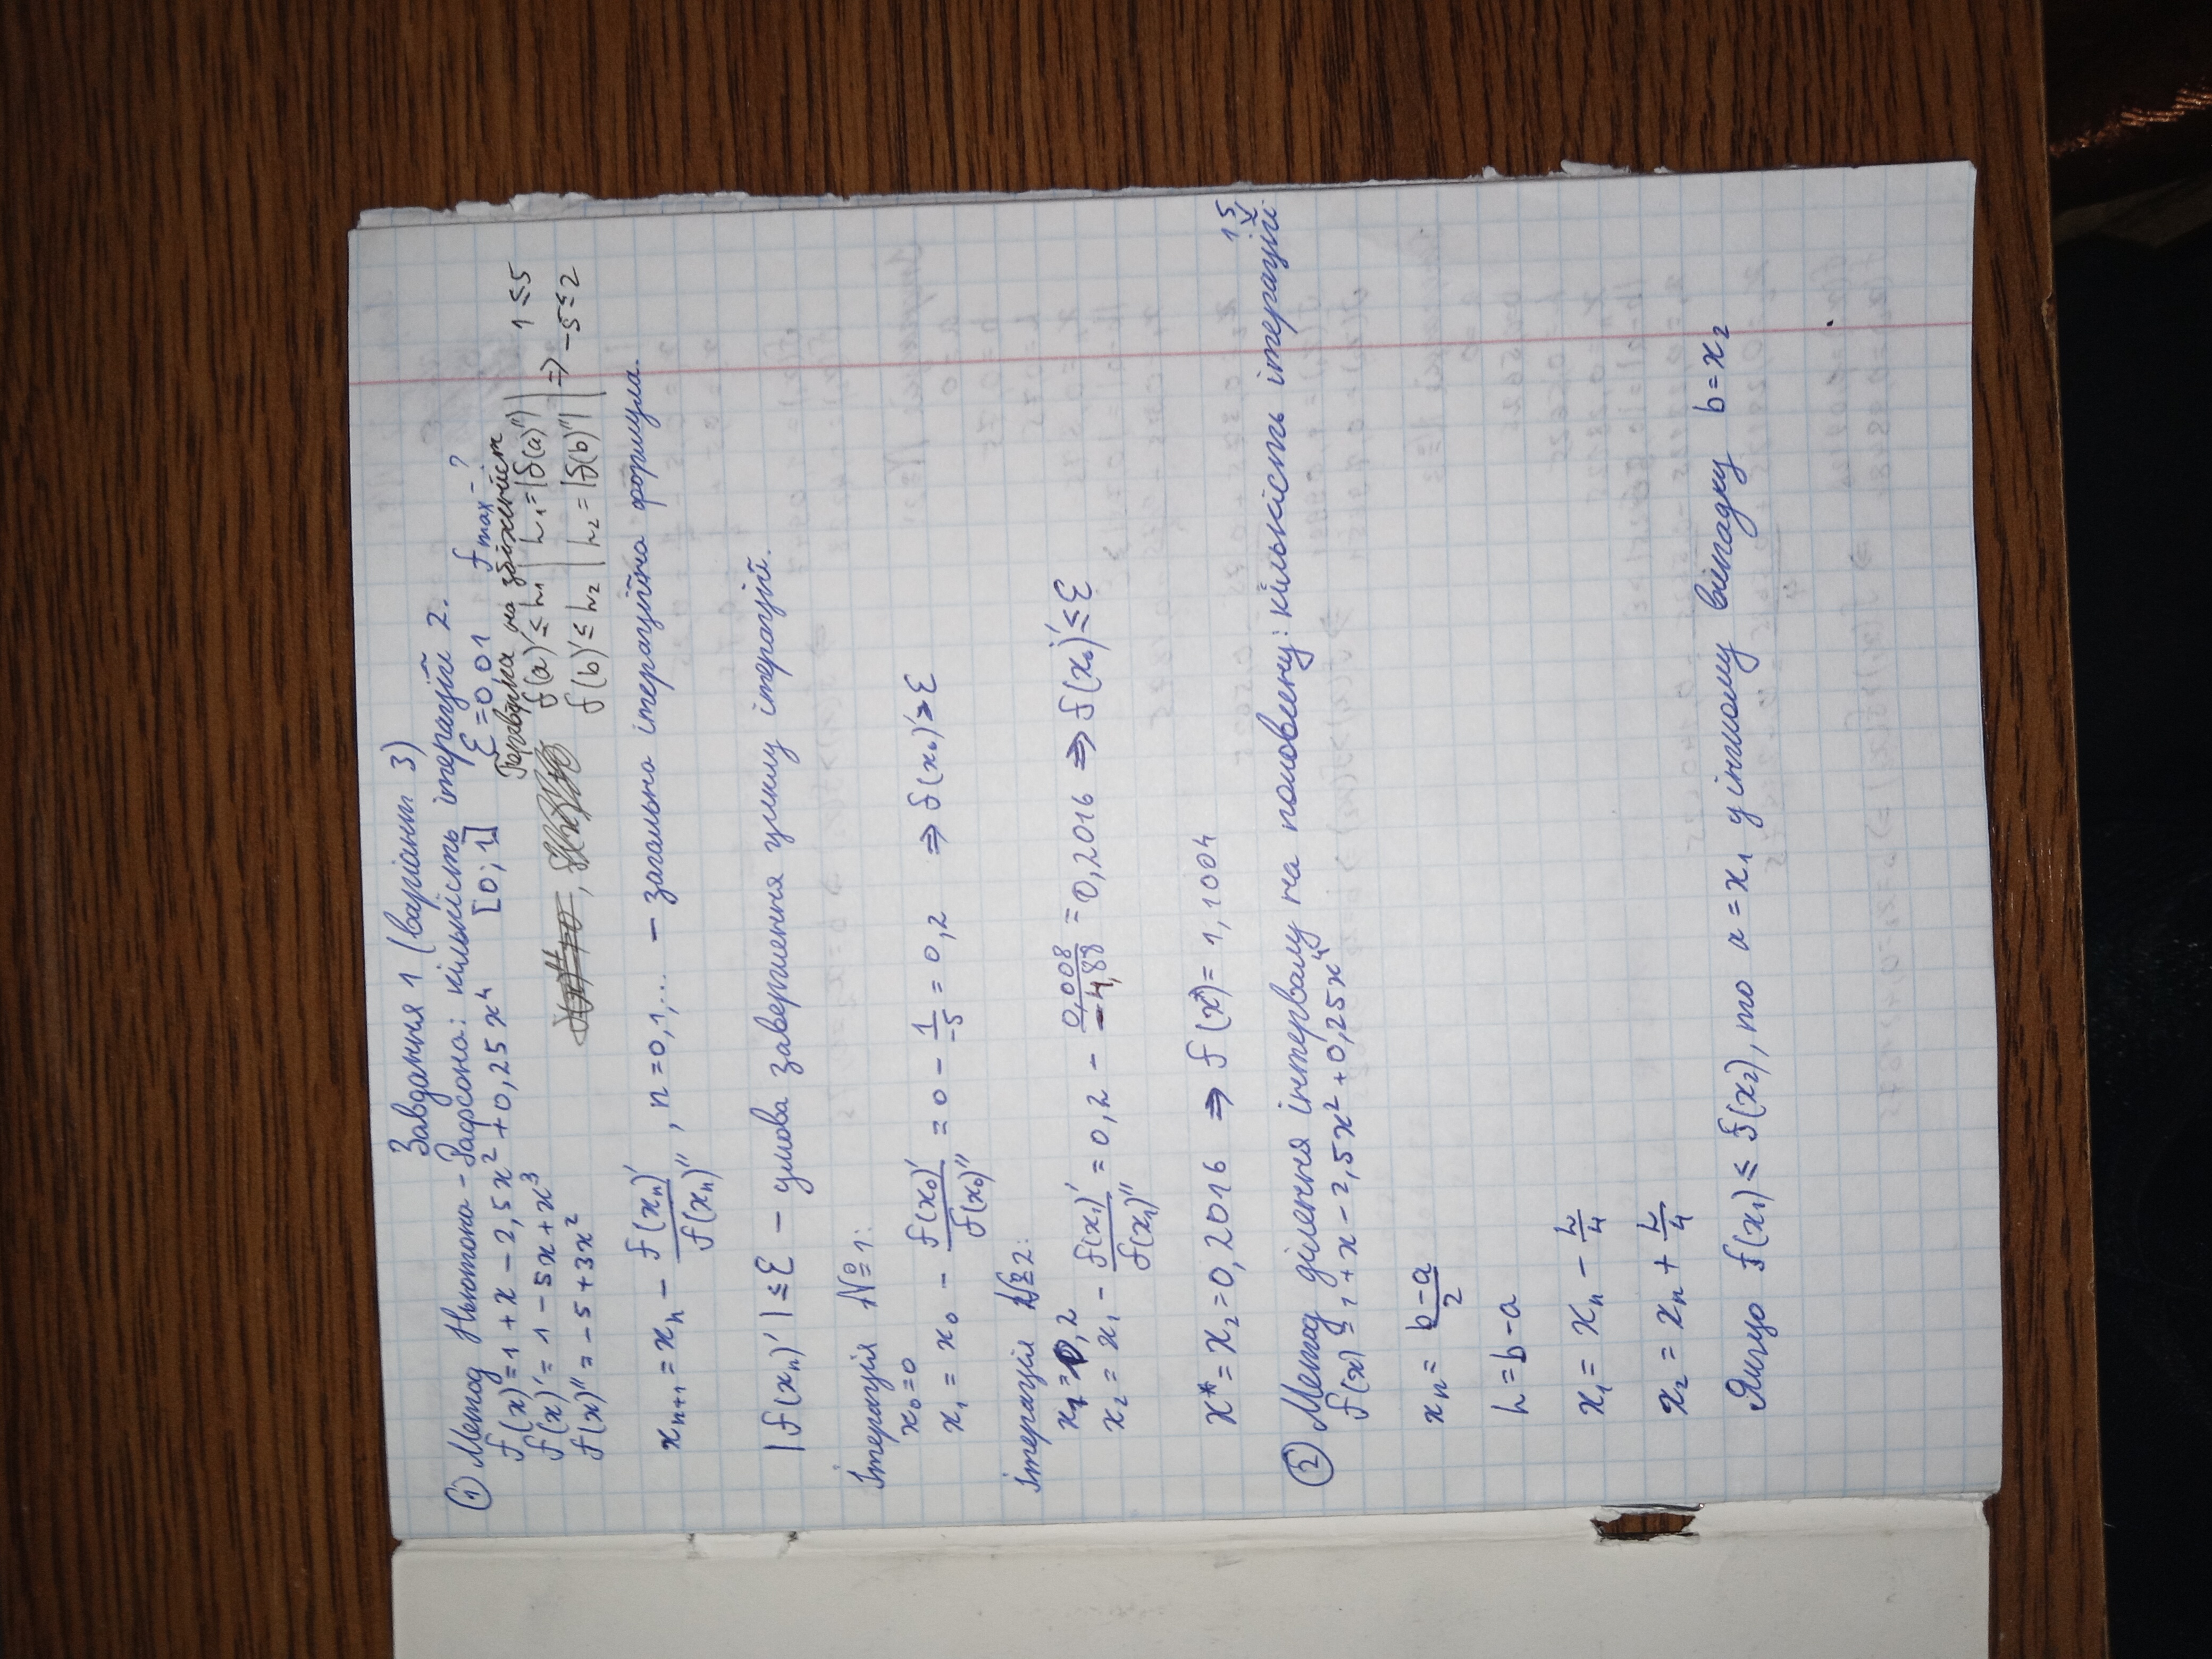 Завдання 1 (варіант 3)
① Метод Ньютона-Рафсона: кількість ітерацій 2.
f(x)=1+x-2,5x²+0,25x⁴ [0;1] ε=0,01 fmax-?
f(x)'=1-5x+x³
f(x)''=-5+3x²
Перевірка на збіжність
f(a)'≤L₁ | L₁=|f(a)''| | ⇒ 1≤5
f(b)'≤L₂ | L₂=|f(b)''| | -5≤2
xₙ₊₁=xₙ-f(xₙ)'/f(xₙ)'', n=0,1,... - загальна ітераційна формула.
|f(xₙ)'|≤ε - умова завершення циклу ітерацій.
Ітерація №1:
x₀=0
x₁=x₀-f(x₀)'/f(x₀)''=0-1/-5=0,2 ⇒ f(x₀)'>ε
Ітерація №2:
x₁=0,2
x₂=x₁-f(x₁)'/f(x₁)''=0,2-0,008/-4,88=0,2016 ⇒ f(x₀)'≤ε
x*=x₂=0,2016 ⇒ f(x*)=1,1004
② Метод ділення інтервалу на половину: кількість ітерацій 15
f(x)=1+x-2,5x²+0,25x⁴
xₙ=b-a/2
L=b-a
x₁=xₙ-L/4
x₂=xₙ+L/4
Якщо f(x₁)≤f(x₂), то a=x₁ у іншому випадку b=x₂